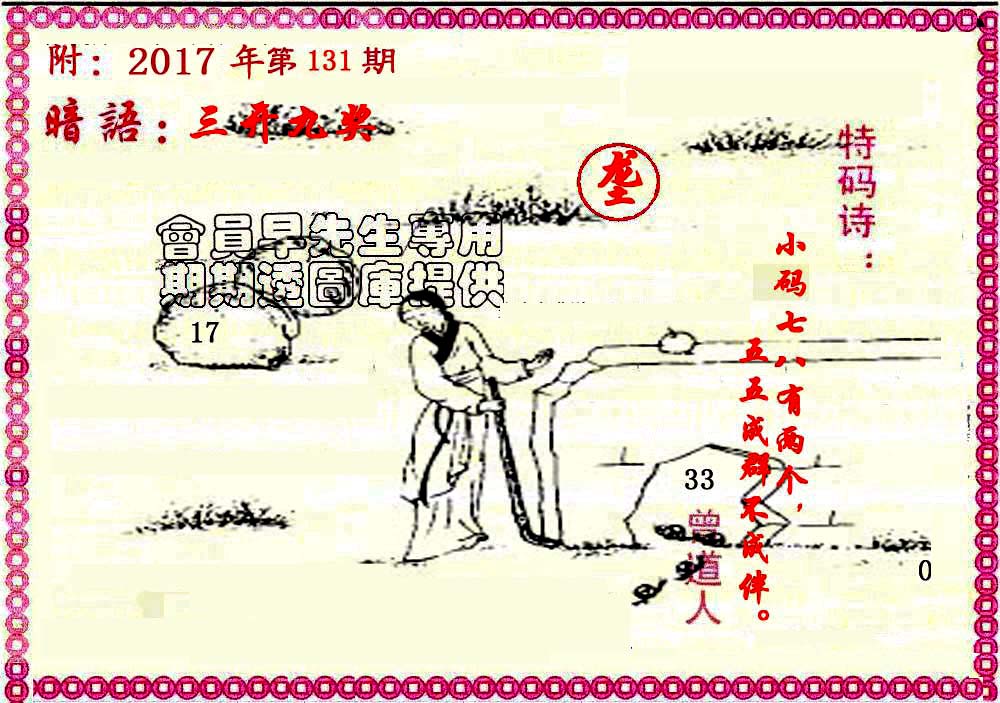 附：2017 年第 131 期
暗語：三开九奖
垄
特码诗：
小码七八有两个，
五五成群不成伴。
會員早先生專用
期期透圖庫提供
17
33
曾道人
0